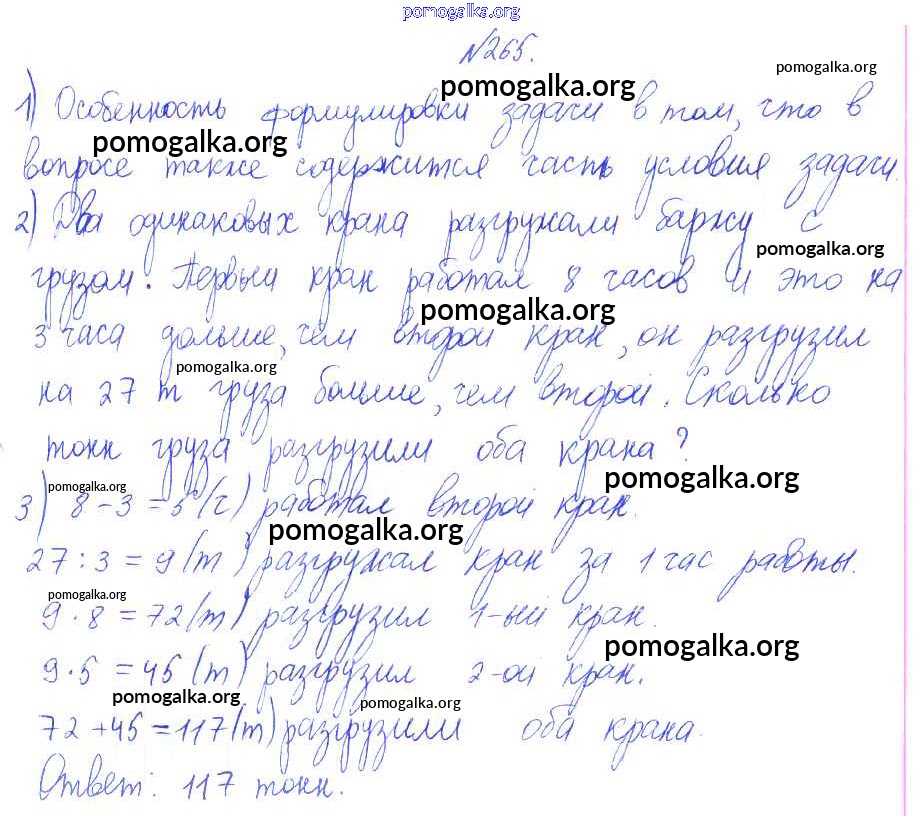 pomogalka.org
№265.
pomogalka.org
pomogalka.org
1) Особенность формулировки задачи в том, что в
pomogalka.org
вопросе также содержится часть условия задачи.
2) Два одинаковых крана разгружали баржу с
pomogalka.org
грузом. Первый кран работал 8 часов и это на
pomogalka.org
3 часа дольше, чем второй кран, он разгрузил
pomogalka.org
на 27 т груза больше, чем второй. Сколько
тонн груза разгрузили оба крана?
pomogalka.org
pomogalka.org
3) 8 - 3 = 5 (ч) работал второй кран.
pomogalka.org
27 : 3 = 9 (т) разгружал кран за 1 час работы.
pomogalka.org
9 · 8 = 72 (т) разгрузил 1-ый кран.
pomogalka.org
9 · 5 = 45 (т) разгрузил 2-ой кран.
pomogalka.org
pomogalka.org
72 + 45 = 117 (т) разгрузили оба крана.
Ответ: 117 тонн.